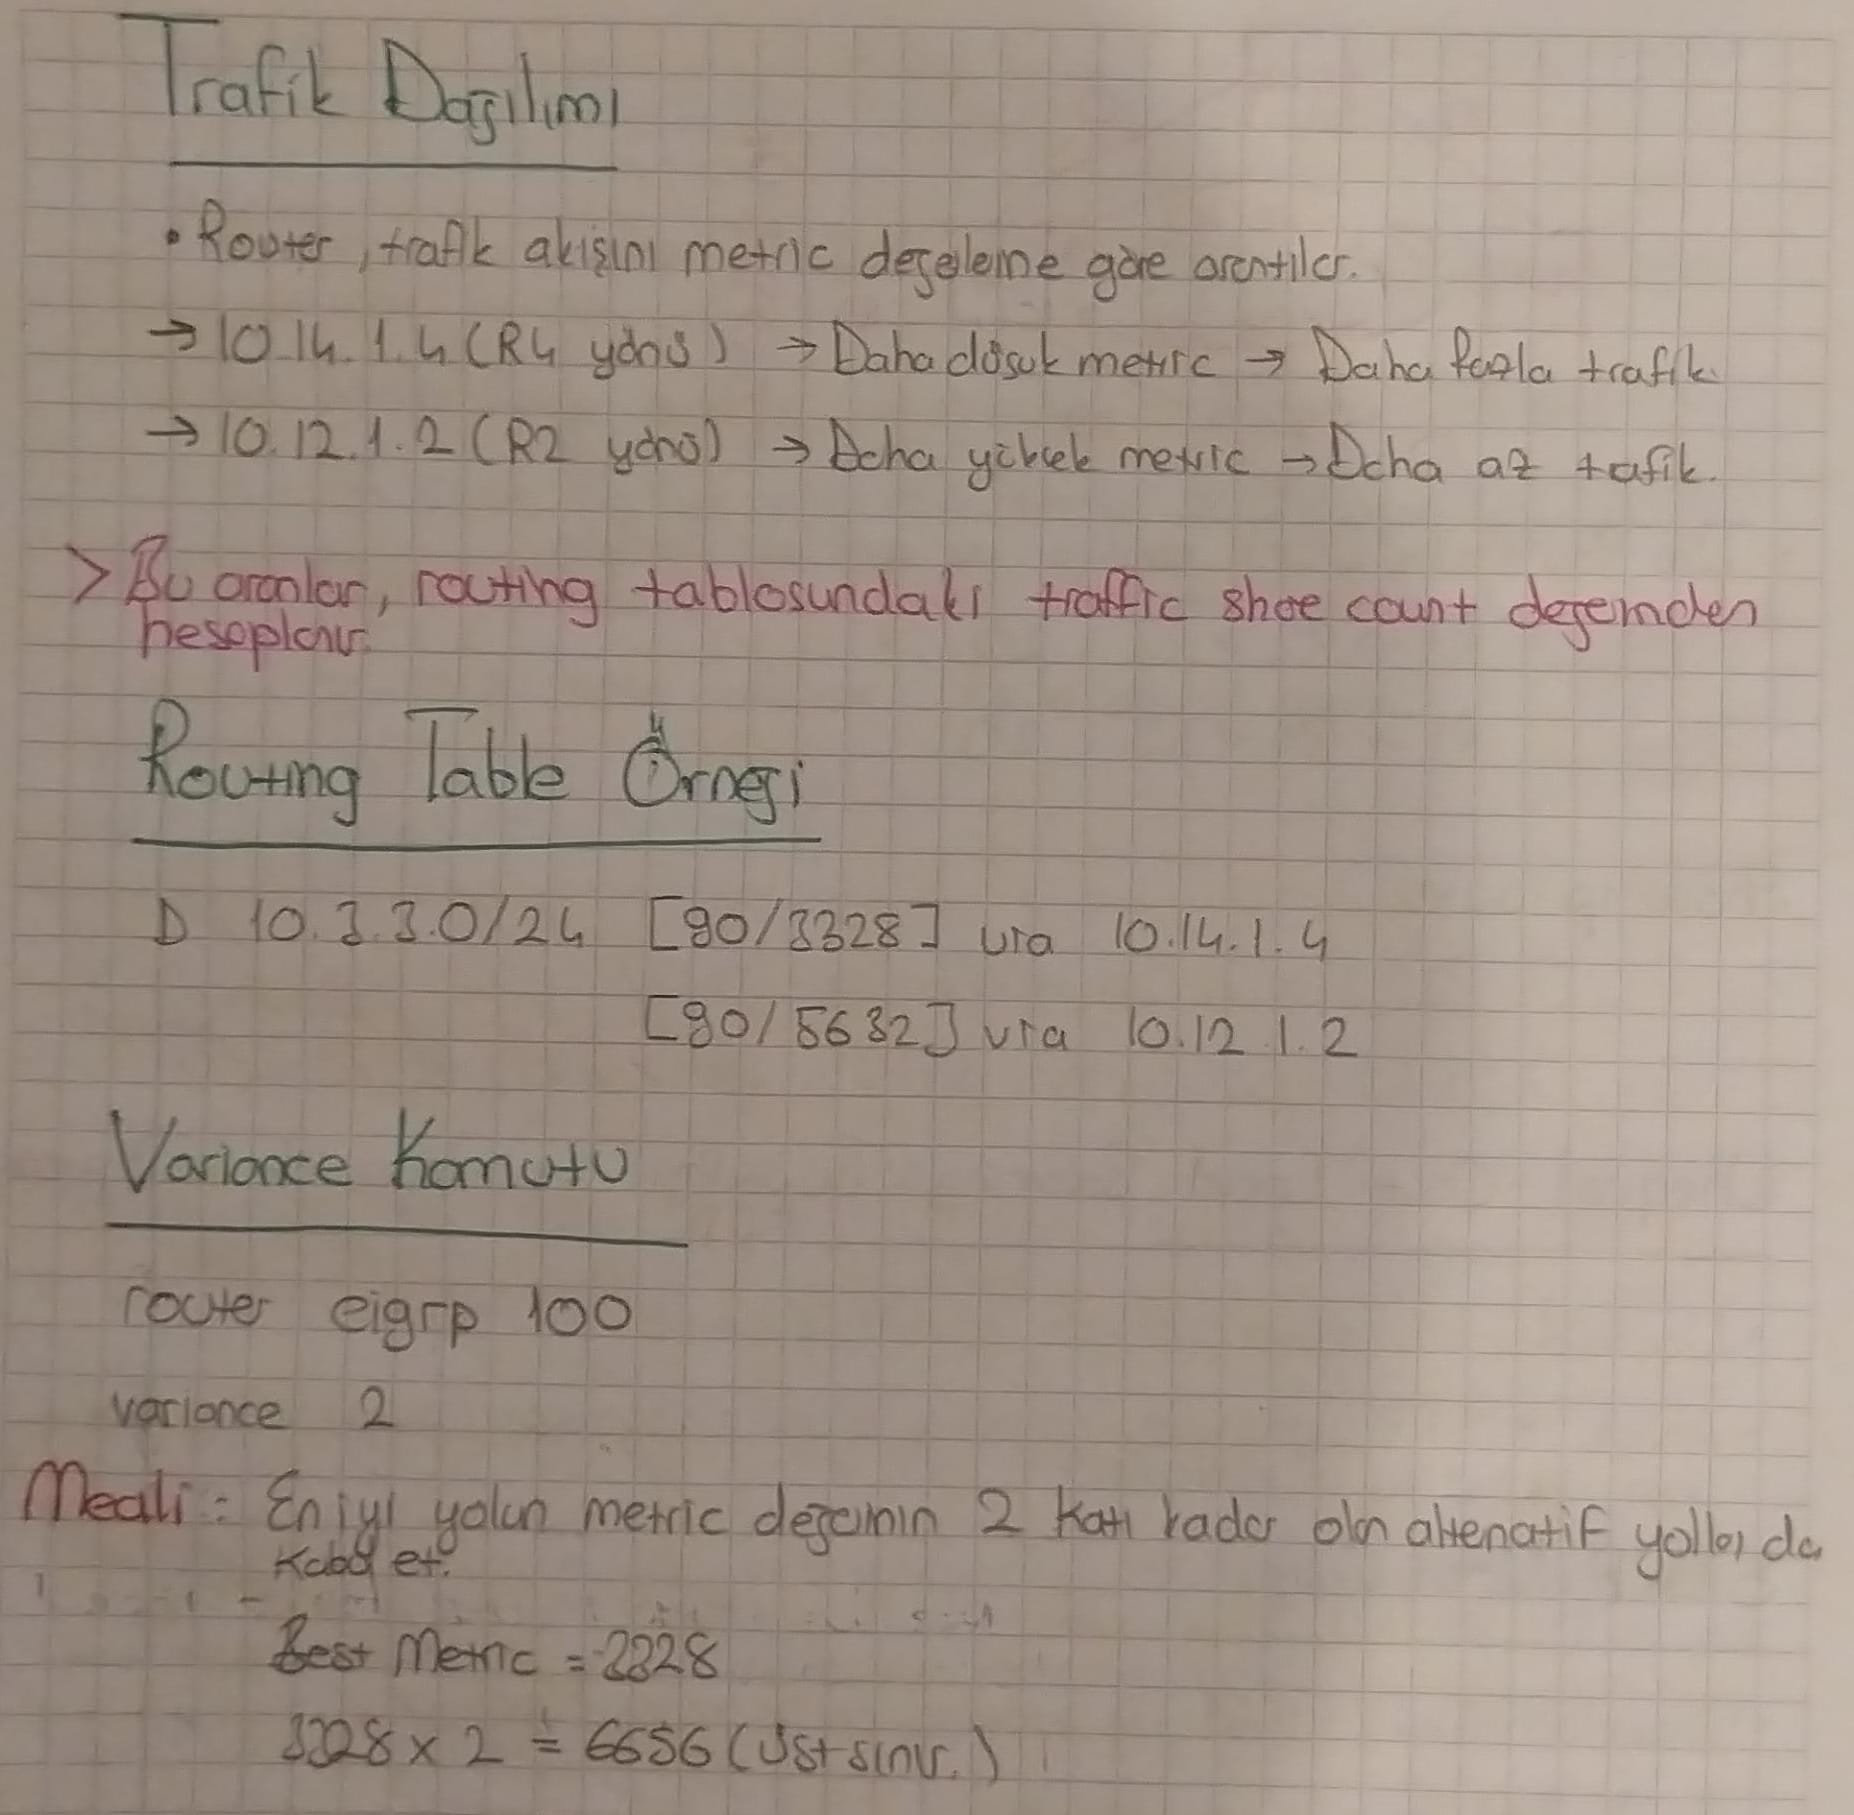 Trafik Dağılımı
• Router, trafik akışını metric değerlerine göre orantılar.
→ 10.14.1.4 (R4 yönü) → Daha düşük metric → Daha fazla trafik.
→ 10.12.1.2 (R2 yönü) → Daha yüksek metric → Daha az trafik.
> Bu oranlar, routing tablosundaki traffic share count değerinden
hesaplanır.
Routing Table Örneği
D 10.3.3.0/24 [90/3328] via 10.14.1.4
[90/5632] via 10.12.1.2
Variance Komutu
router eigrp 100
variance 2
Meali: En iyi yolun metric değerinin 2 katı kadar olan alternatif yolları da
Kabul et.
Best Metric = 3328
3328 x 2 = 6656 (Üst sınır.)